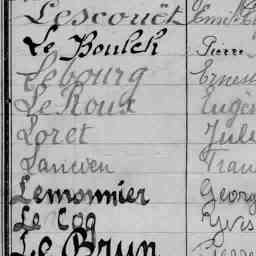 Lescouët
Le Boulch Pierre
Lebourg Ernest
Le Roux Eugène
Loret Jules
Lanuen
Lemonnier Georg
Le Coq Yves
Le Brun Pierre